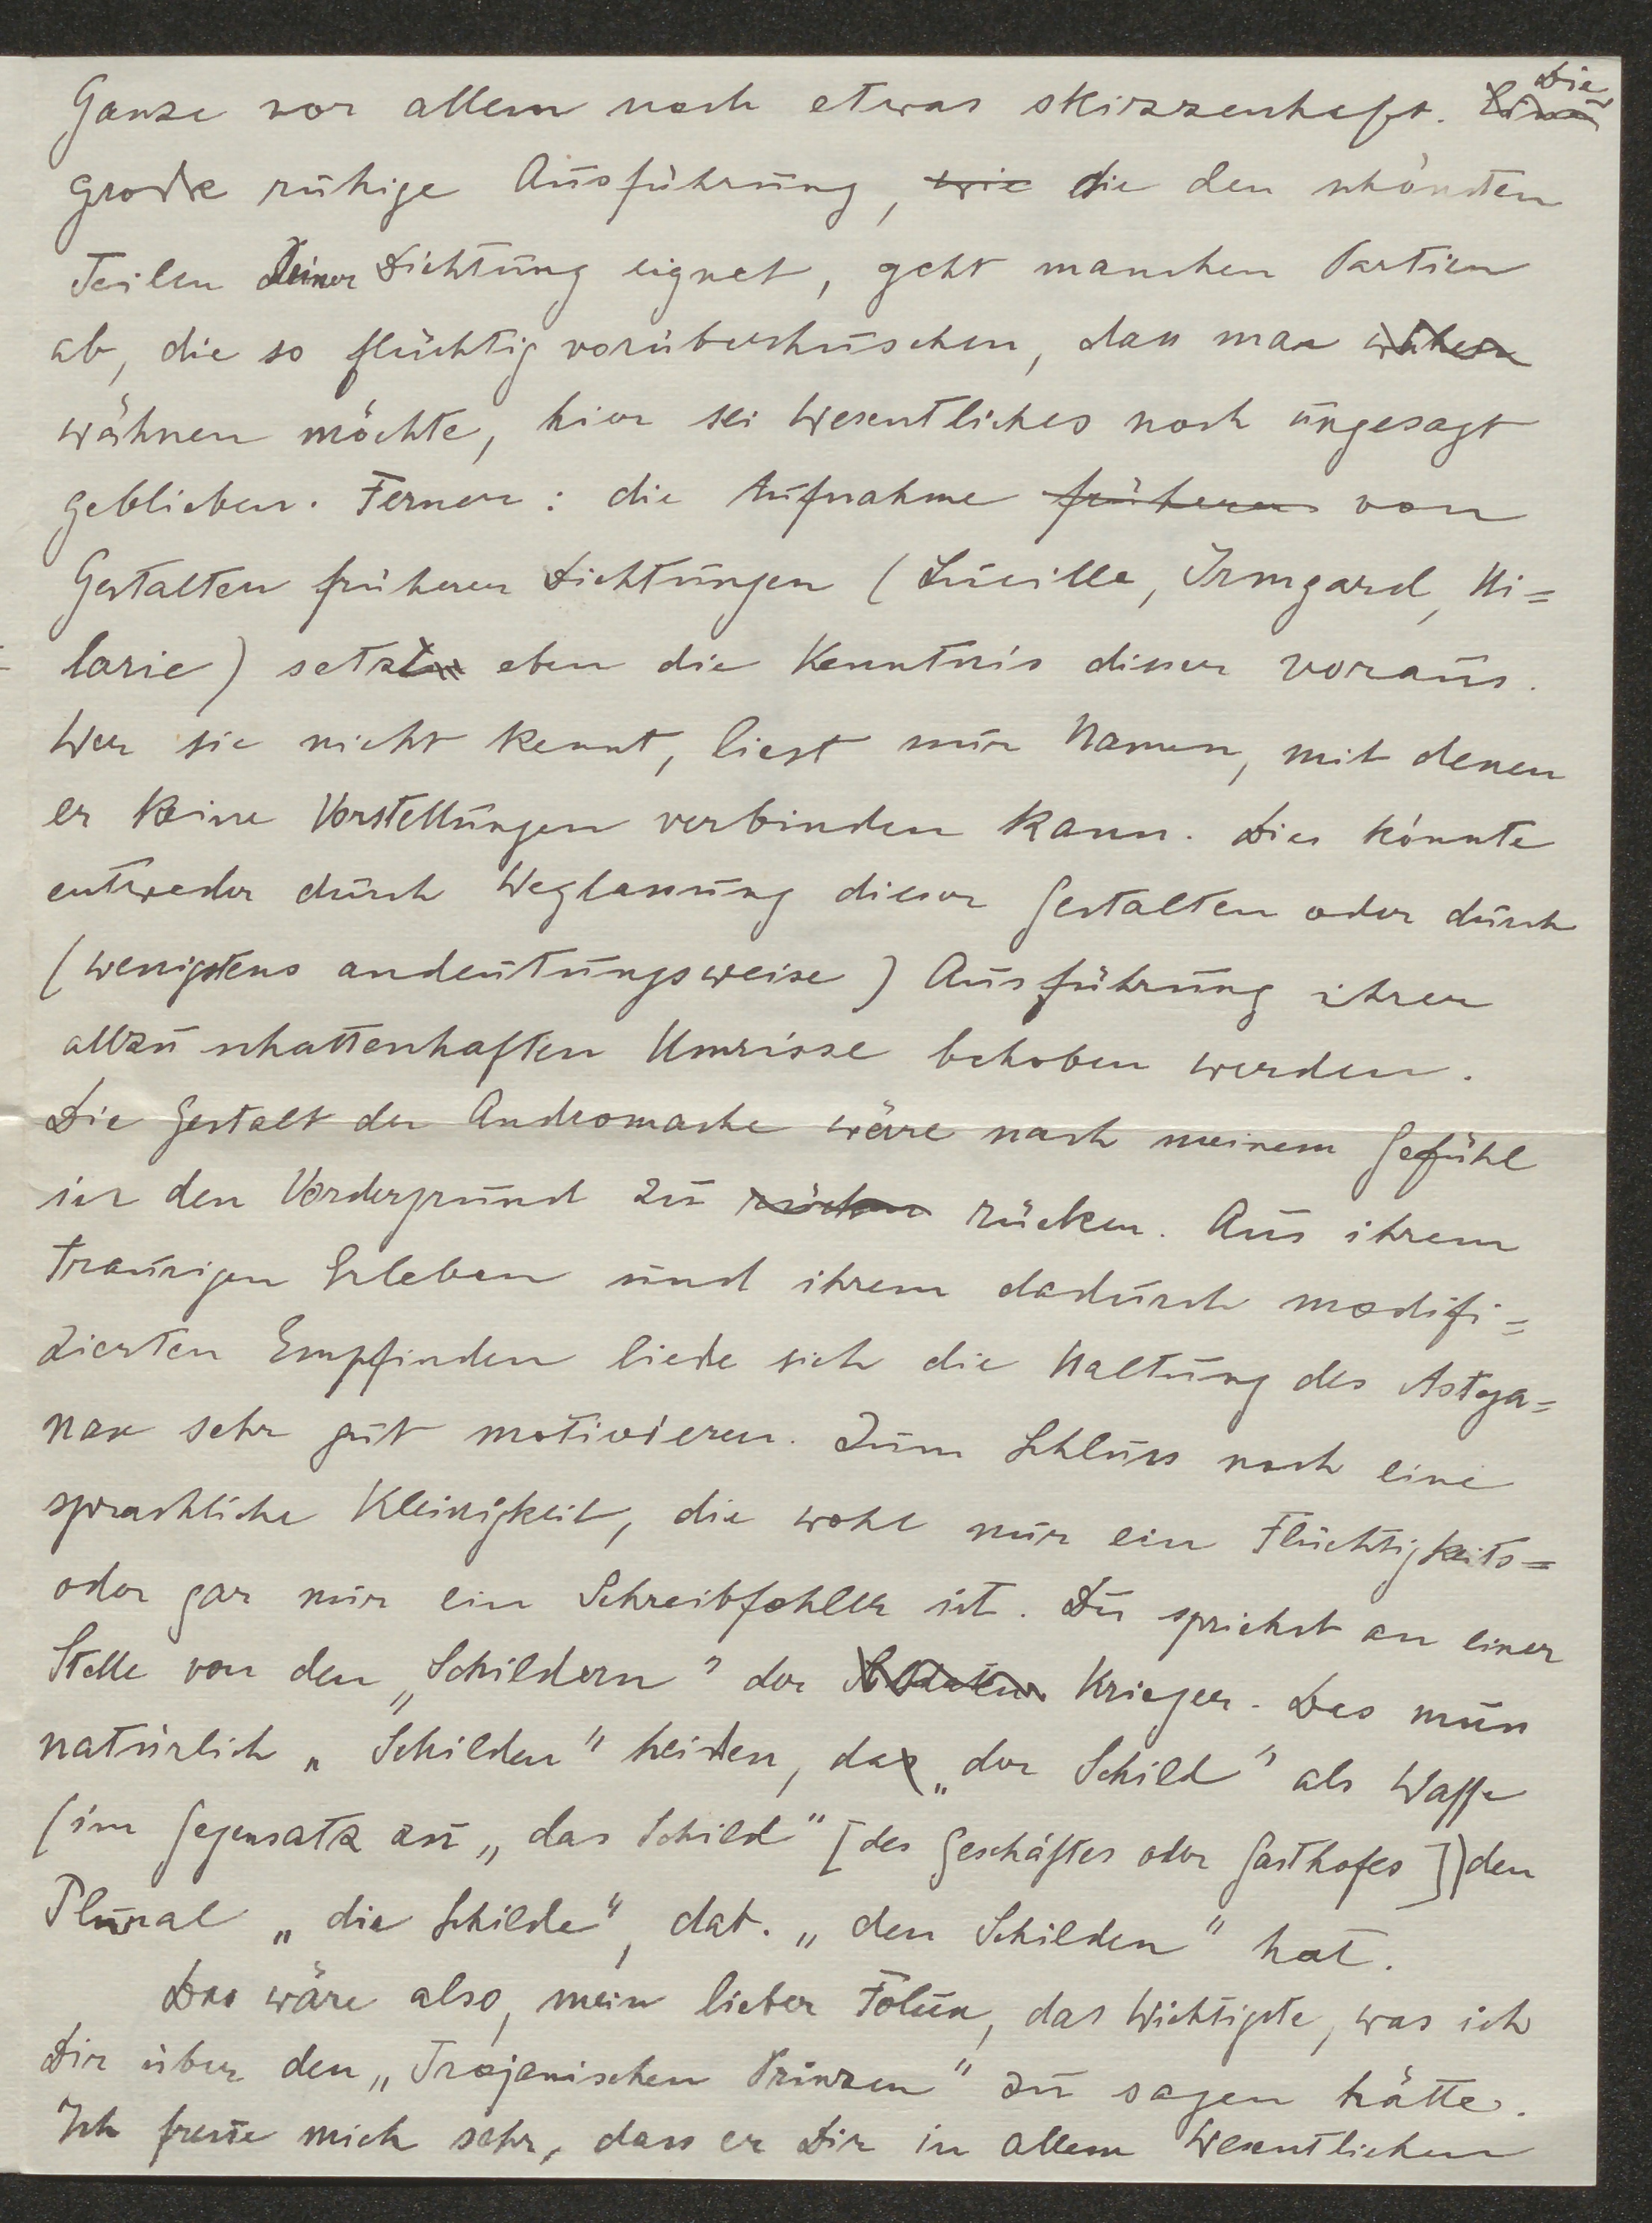 Ganze vor allem noch etwas skizzenhaft. Die
große ruhige Ausführung, die den schönsten
Teilen Deiner Dichtung eignet, geht manchen Partien
ab, die so flüchtig vorüberhuschen, dass man
wähnen möchte, hier sei Wesentliches noch ungesagt
geblieben. Ferner: die Aufnahme früherer von
Gestalten früherer Dichtungen (Lucille, Irmgard, Hi=
larie) setzt eben die Kenntnis dieser voraus.
Wer sie nicht kennt, liest nur Namen, mit denen
er keine Vorstellungen verbinden kann. Dies könnte
entweder durch Weglassung dieser Gestalten oder durch
(wenigstens andeutungsweise) Ausführung ihrer
allzu schattenhaften Umrisse behoben werden.
Die Gestalt der Andromache wäre nach meinem Gefühl
in den Vordergrund zu rücken rücken. Aus ihrem
traurigen Erleben und ihrem dadurch modifi=
zierten Empfinden ließe sich die Haltung des Astya=
nax sehr gut motivieren. Zum Schluss noch eine
sprachliche Kleinigkeit, die wohl nur ein Flüchtigkeits=
oder gar nur ein Schreibfehler ist. Du sprichst an einer
Stelle von den „Schildern" der Krieger. Das muss
natürlich „Schilden" heißen, da „der Schild" als Waffe
(im Gegensatz zu „das Schild" [des Geschäftes oder Gasthofes]) den
Plural „die Schilde", dat. „den Schilden" hat.
Das wäre also, mein lieber Folun, das Wichtigste, was ich
Dir über den „Trojanischen Prinzen" zu sagen hätte.
Ich freue mich sehr, dass er Dir in allem Wesentlichen